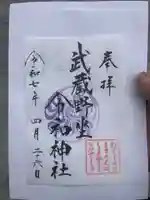 奉拝
武蔵野坐
令和神社
令和七年
四月二十六日